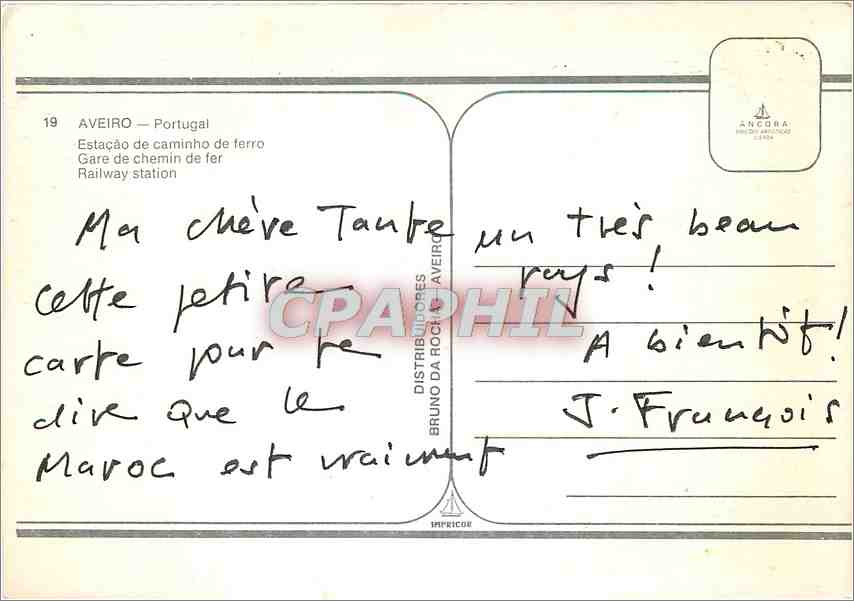 19 AVEIRO — Portugal
Estação de caminho de ferro
Gare de chemin de fer
Railway station
Ma chère Tante
cette petite
carte pour te
dire que le
Maroc est vraiment
un très beau
pays !
A bientôt !
J. François
DISTRIBUIDORES
BRUNO DA ROCHA - AVEIRO
ANCORA
IMPRICOR
CPAPHIL